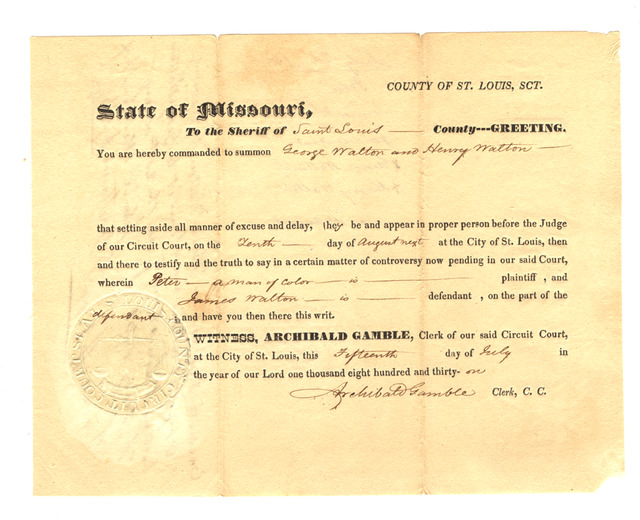 COUNTY OF ST. LOUIS, SCT.
State of Missouri,
To the Sheriff of Saint Louis — County---GREETING.
You are hereby commanded to summon George Walton and Henry Walton —
that setting aside all manner of excuse and delay, they be and appear in proper person before the Judge
of our Circuit Court, on the Tenth — day of August next at the City of St. Louis, then
and there to testify and the truth to say in a certain matter of controversy now pending in our said Court,
wherein Peter — a man of color — is — plaintiff , and
James Walton — is — defendant , on the part of the
defendant , and have you then there this writ.
WITNESS, ARCHIBALD GAMBLE, Clerk of our said Circuit Court,
at the City of St. Louis, this Fifteenth day of July in
the year of our Lord one thousand eight hundred and thirty- one
Archibald Gamble Clerk, C. C.